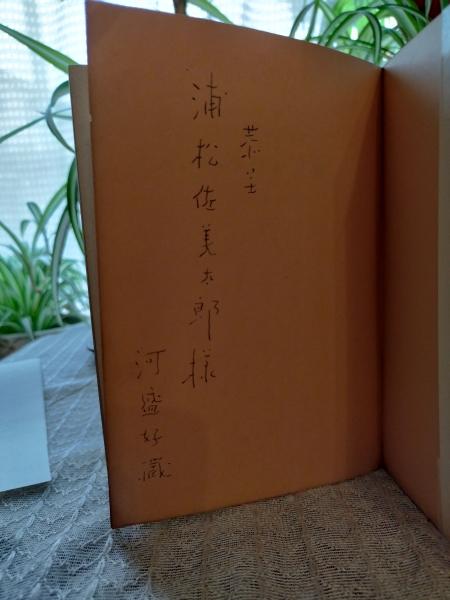 恭呈
浦松佐美太郎様
河盛好蔵